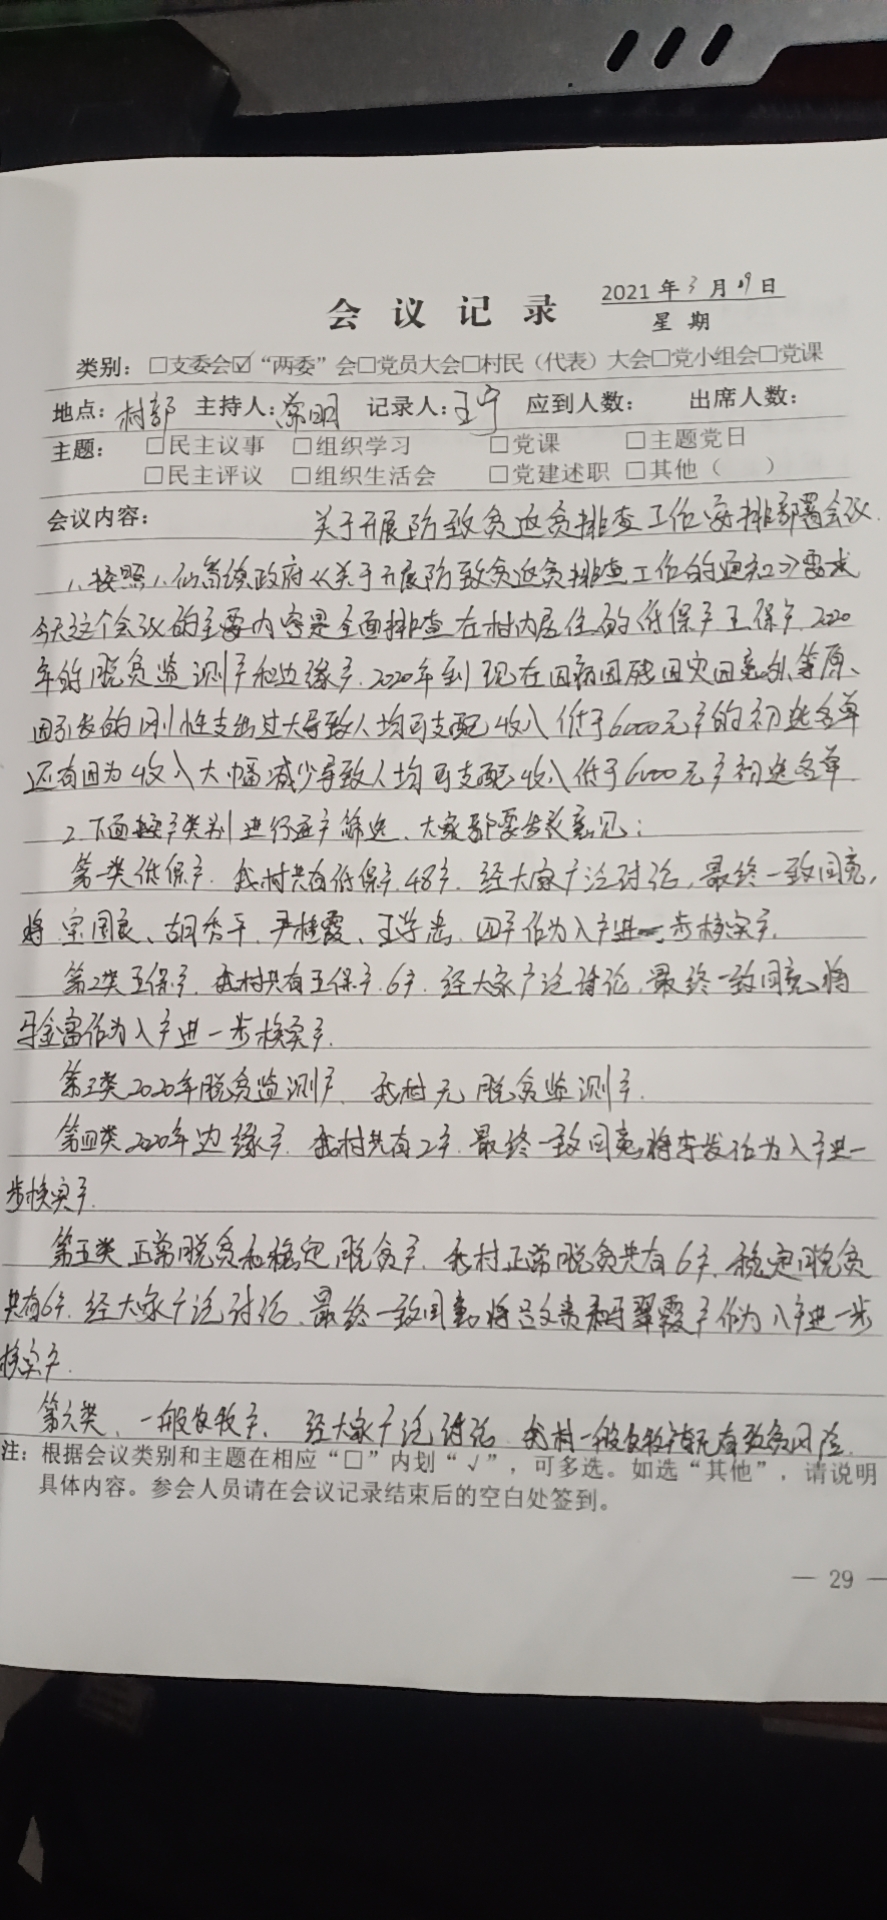 会议记录
2021年3月19日
星期
类别：□支委会☑“两委”会□党员大会□村民（代表）大会□党小组会□党课
地点：村部 主持人：常明 记录人：王宁 应到人数： 出席人数：
主题： □民主议事 □组织学习 □党课 □主题党日
□民主评议 □组织生活会 □党建述职 □其他（ ）
会议内容： 关于开展防致贫返贫排查工作安排部署会议.
1、按照 政府《关于开展防致贫返贫排查工作的通知》要求
今天这个会议的主要内容是全面排查在村内居住的低保户五保户.2020
年的脱贫监测户和边缘户.2020年到现在因病因残因灾因意外等原
因引发的刚性支出过大导致人均可支配收入低于6000元户的初选名单
还有因为收入大幅减少导致人均可支配收入低于6000元户初选名单.
2.下面按户类别进行逐户筛选、大家都要发表意见：
第一类低保户.我村共有低保户.48户.经大家广泛讨论,最终一致同意,
将宗国良、胡秀平、尹桂霞、王学 .四户作为入户进一步核实户.
第2类五保户.我村共有五保户.6户.经大家广泛讨论.最终一致同意将
金富作为入户进一步核实户.
第三类2020年脱贫监测户.我村无脱贫监测户.
第四类2020年边缘户.我村共有2户.最终一致同意将李发作为入户进一
步核实户.
第五类正常脱贫和稳定脱贫户.我村正常脱贫共有6户.稳定脱贫
共有6户.经大家广泛讨论.最终一致同意将吕文贵和于翠霞户作为入户进一步
核实户.
第六类、一般农牧户.经大家广泛讨论.我村一般农牧户都无有致贫风险.
注：根据会议类别和主题在相应“□”内划“√”，可多选。如选“其他”，请说明
具体内容。参会人员请在会议记录结束后的空白处签到。
— 29 —